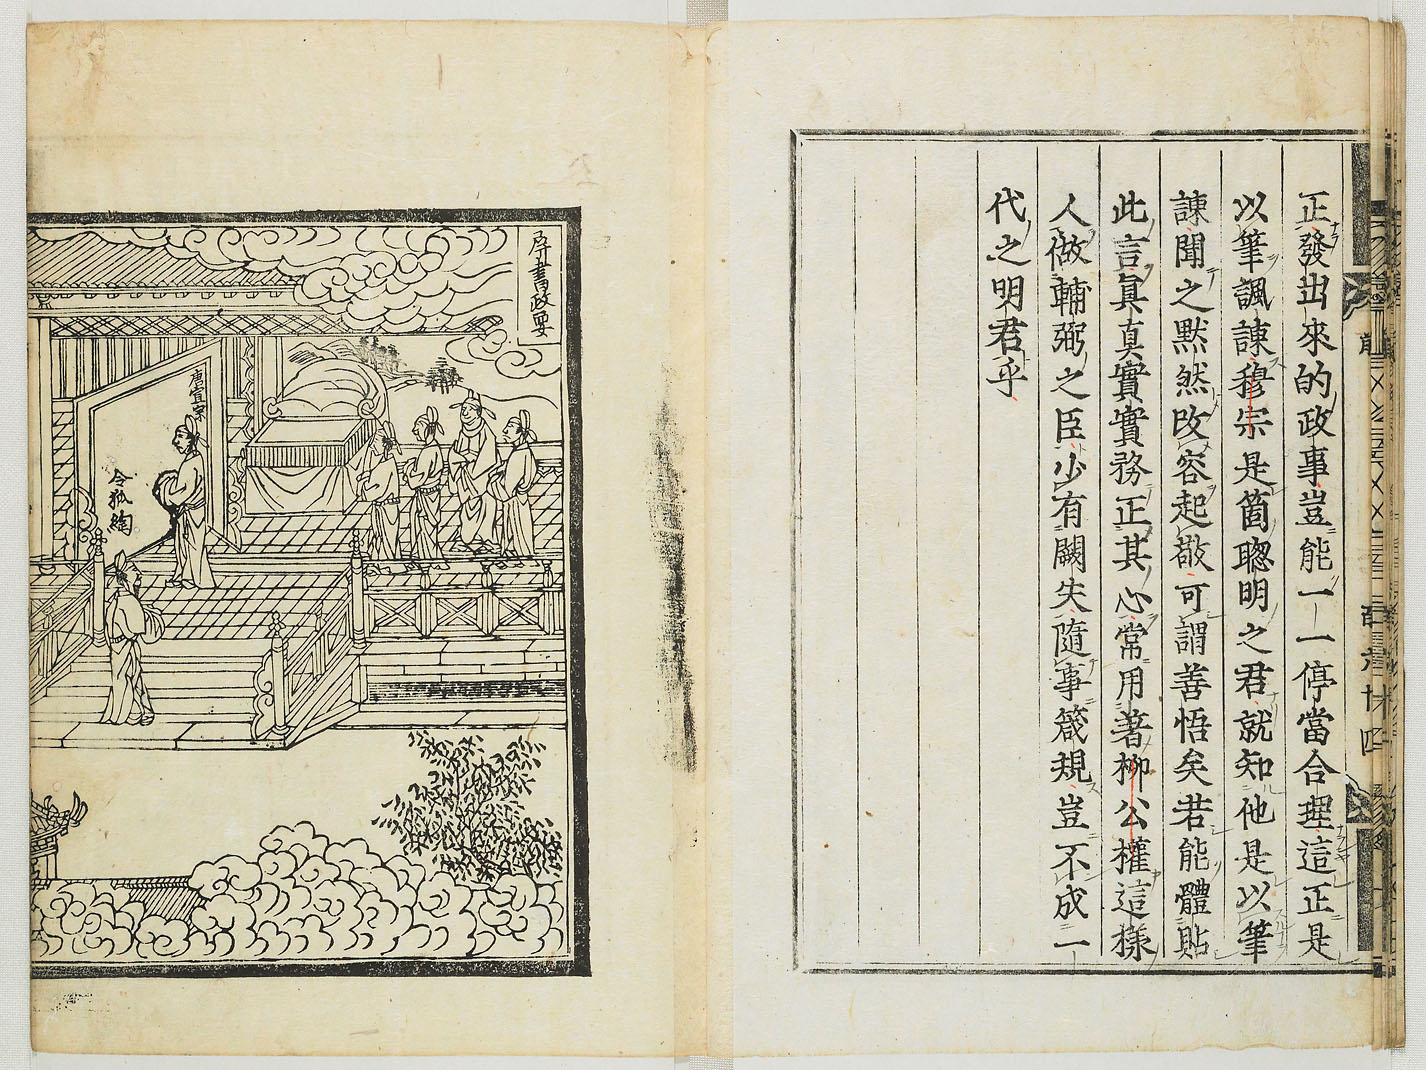 正發出來的政事豈能一一停當合理這正是
以筆諷諫穆宗是箇聰明之君就知他是以筆
諫聞之默然改容起敬可謂善悟矣若能體貼
此言真真實實務正其心常用著柳公權這樣
人做輔弼之臣少有闕失隨事箴規豈不成一
代之明君乎
屏書政要
唐宣宗
令狐綯